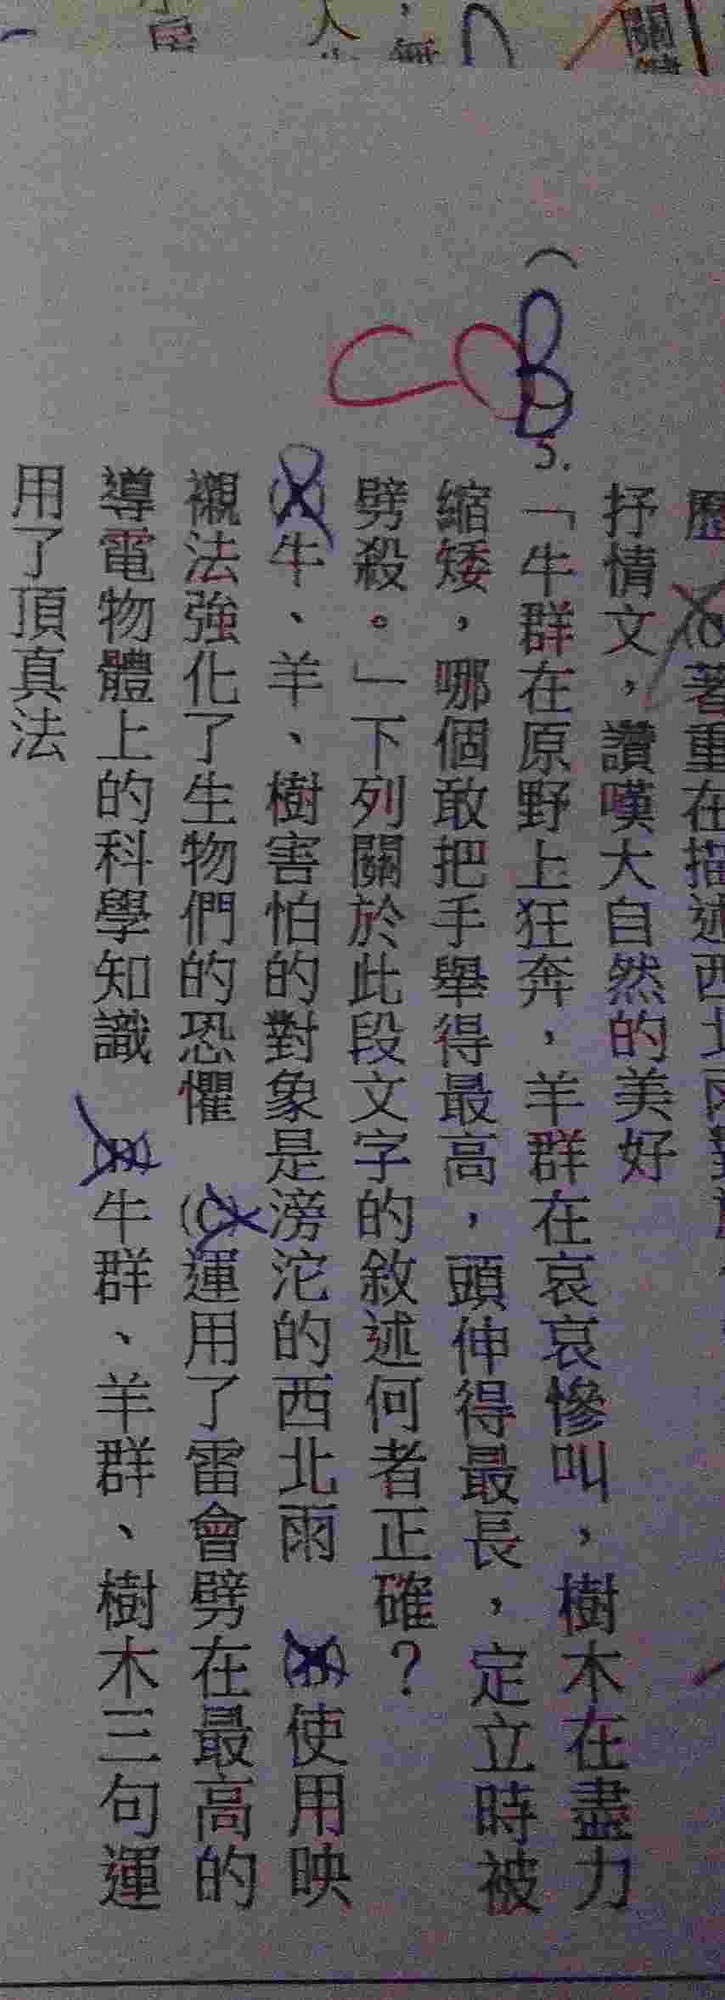 著重在描述西北雨
抒情文，讚嘆大自然的美好
(B)5.「牛群在原野上狂奔，羊群在哀哀慘叫，樹木在盡力
縮矮，哪個敢把手舉得最高，頭伸得最長，定立時被
劈殺。」下列關於此段文字的敘述何者正確？
C
牛、羊、樹害怕的對象是滂沱的西北雨　(B)使用映
襯法強化了生物們的恐懼　(C)運用了雷會劈在最高的
導電物體上的科學知識　牛群、羊群、樹木三句運
用了頂真法